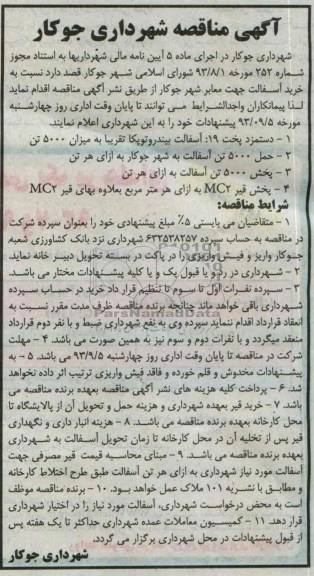 آگهی مناقصه شهرداری جوکار
شهرداری جوکار در اجرای ماده ۵ آیین نامه مالی شهرداریها به استناد مجوز
شماره ۲۵۲ مورخه ۹۳/۸/۱ شورای اسلامی شهر جوکار قصد دارد نسبت به
خرید آسفالت جهت معابر شهر جوکار از طریق نشر آگهی مناقصه اقدام نماید
لذا پیمانکاران واجدالشرایط می توانند تا پایان وقت اداری روز چهارشنبه
مورخه ۹۳/۰۹/۵ پیشنهادات خود را به این شهرداری اعلام نمایند.
۱ - دستمزد پخت ۱۹: آسفالت بیندروتوپکا تقریبا به میزان ۵۰۰۰ تن
۲ - حمل ۵۰۰۰ تن آسفالت به شهر جوکار به ازای هر تن
۳ - پخش ۵۰۰۰ تن آسفالت به ازای هر تن
۴ - پخش قیر MC۲ به ازای هر متر مربع بعلاوه بهای قیر MC۲
شرایط مناقصه:
۱ - متقاضیان می بایستی ۵٪ مبلغ پیشنهادی خود را بعنوان سپرده شرکت
در مناقصه به حساب سپرده ۶۳۳۵۳۸۲۵۷ شهرداری نزد بانک کشاورزی شعبه
جوکار واریز و فیش واریزی را در پاکت در بسته تحویل دبیر خانه نماید.
۲ - شهرداری در رد و یا قبول یک و یا کلیه پیشنهادات مختار می باشد.
۳ - سپرده نفرات اول تا سوم تا تنظیم قرار داد خرید در حساب سپرده
شهرداری باقی خواهد ماند چنانچه برنده مناقصه ظرف مدت مقرر نسبت به
انعقاد قرارداد اقدام ننماید سپرده وی به نفع شهرداری ضبط و با نفر دوم قرارداد
منعقد میگردد و با نفرات دوم و سوم نیز به همین صورت می باشد. ۴ - مهلت
شرکت در مناقصه تا پایان وقت اداری روز چهارشنبه ۹۳/۹/۵ می باشد. ۵ - به
پیشنهادات مخدوش و قلم خورده و فاقد فیش واریزی ترتیب اثر داده نخواهد
شد. ۶ - پرداخت کلیه هزینه های نشر آگهی مناقصه بعهده برنده مناقصه می
باشد. ۷ - خرید قیر بعهده شهرداری و هزینه حمل و تحویل آن از پالایشگاه تا
محل کارخانه بعهده برنده مناقصه می باشد. ۸ - هزینه انبار داری و نگهداری
قیر پس از تخلیه آن در محل کارخانه تا زمان تحویل آسفالت به شهرداری
بعهده برنده مناقصه می باشد. ۹ - مبنای محاسبه قیمت قیر مصرفی جهت
آسفالت مورد نیاز شهرداری به ازای هر تن آسفالت طبق طرح اختلاط کارخانه
و مطابق با نشریه ۱۰۱ ملاک عمل خواهد بود. ۱۰ - برنده مناقصه موظف
است به محض درخواست شهرداری، آسفالت مورد نیاز را در اختیار شهرداری
قرار دهد. ۱۱ - کمیسیون معاملات عمده شهرداری حداکثر تا یک هفته پس
از قبول پیشنهادات در محل شهرداری برگزار می گردد.
شهرداری جوکار